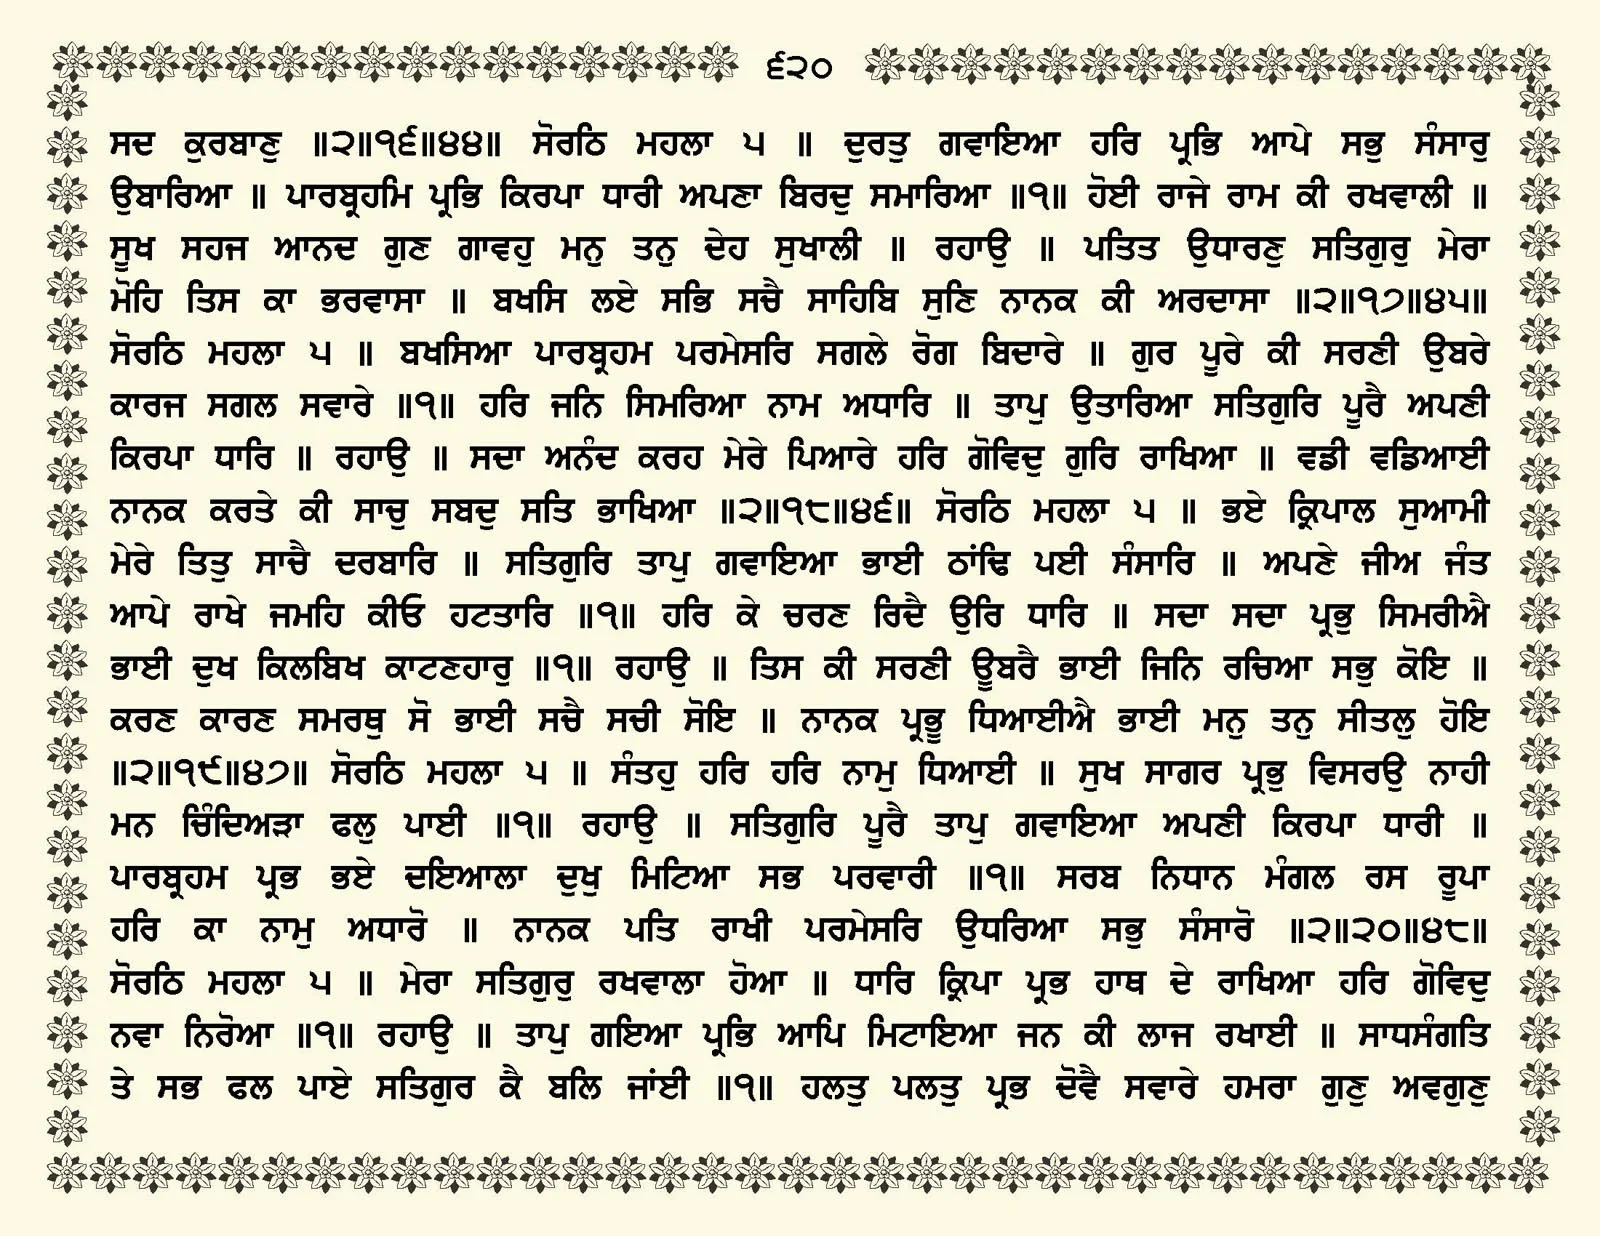 ੬੨੦
ਸਦ ਕੁਰਬਾਣੁ ॥੨॥੧੬॥੪੪॥ ਸੋਰਠਿ ਮਹਲਾ ੫ ॥ ਦੁਰਤੁ ਗਵਾਇਆ ਹਰਿ ਪ੍ਰਭਿ ਆਪੇ ਸਭੁ ਸੰਸਾਰੁ
ਉਬਾਰਿਆ ॥ ਪਾਰਬ੍ਰਹਮਿ ਪ੍ਰਭਿ ਕਿਰਪਾ ਧਾਰੀ ਅਪਣਾ ਬਿਰਦੁ ਸਮਾਰਿਆ ॥੧॥ ਹੋਈ ਰਾਜੇ ਰਾਮ ਕੀ ਰਖਵਾਲੀ ॥
ਸੂਖ ਸਹਜ ਆਨਦ ਗੁਣ ਗਾਵਹੁ ਮਨੁ ਤਨੁ ਦੇਹ ਸੁਖਾਲੀ ॥ ਰਹਾਉ ॥ ਪਤਿਤ ਉਧਾਰਣੁ ਸਤਿਗੁਰੁ ਮੇਰਾ
ਮੋਹਿ ਤਿਸ ਕਾ ਭਰਵਾਸਾ ॥ ਬਖਸਿ ਲਏ ਸਭਿ ਸਚੈ ਸਾਹਿਬਿ ਸੁਣਿ ਨਾਨਕ ਕੀ ਅਰਦਾਸਾ ॥੨॥੧੭॥੪੫॥
ਸੋਰਠਿ ਮਹਲਾ ੫ ॥ ਬਖਸਿਆ ਪਾਰਬ੍ਰਹਮ ਪਰਮੇਸਰਿ ਸਗਲੇ ਰੋਗ ਬਿਦਾਰੇ ॥ ਗੁਰ ਪੂਰੇ ਕੀ ਸਰਣੀ ਉਬਰੇ
ਕਾਰਜ ਸਗਲ ਸਵਾਰੇ ॥੧॥ ਹਰਿ ਜਨਿ ਸਿਮਰਿਆ ਨਾਮ ਅਧਾਰਿ ॥ ਤਾਪੁ ਉਤਾਰਿਆ ਸਤਿਗੁਰਿ ਪੂਰੈ ਅਪਣੀ
ਕਿਰਪਾ ਧਾਰਿ ॥ ਰਹਾਉ ॥ ਸਦਾ ਅਨੰਦ ਕਰਹ ਮੇਰੇ ਪਿਆਰੇ ਹਰਿ ਗੋਵਿਦੁ ਗੁਰਿ ਰਾਖਿਆ ॥ ਵਡੀ ਵਡਿਆਈ
ਨਾਨਕ ਕਰਤੇ ਕੀ ਸਾਚੁ ਸਬਦੁ ਸਤਿ ਭਾਖਿਆ ॥੨॥੧੮॥੪੬॥ ਸੋਰਠਿ ਮਹਲਾ ੫ ॥ ਭਏ ਕ੍ਰਿਪਾਲ ਸੁਆਮੀ
ਮੇਰੇ ਤਿਤੁ ਸਾਚੈ ਦਰਬਾਰਿ ॥ ਸਤਿਗੁਰਿ ਤਾਪੁ ਗਵਾਇਆ ਭਾਈ ਠਾਂਢਿ ਪਈ ਸੰਸਾਰਿ ॥ ਅਪਣੇ ਜੀਅ ਜੰਤ
ਆਪੇ ਰਾਖੇ ਜਮਹਿ ਕੀਓ ਹਟਤਾਰਿ ॥੧॥ ਹਰਿ ਕੇ ਚਰਣ ਰਿਦੈ ਉਰਿ ਧਾਰਿ ॥ ਸਦਾ ਸਦਾ ਪ੍ਰਭੁ ਸਿਮਰੀਐ
ਭਾਈ ਦੁਖ ਕਿਲਬਿਖ ਕਾਟਣਹਾਰੁ ॥੧॥ ਰਹਾਉ ॥ ਤਿਸ ਕੀ ਸਰਣੀ ਊਬਰੈ ਭਾਈ ਜਿਨਿ ਰਚਿਆ ਸਭੁ ਕੋਇ ॥
ਕਰਣ ਕਾਰਣ ਸਮਰਥੁ ਸੋ ਭਾਈ ਸਚੈ ਸਚੀ ਸੋਇ ॥ ਨਾਨਕ ਪ੍ਰਭੂ ਧਿਆਈਐ ਭਾਈ ਮਨੁ ਤਨੁ ਸੀਤਲੁ ਹੋਇ
॥੨॥੧੯॥੪੭॥ ਸੋਰਠਿ ਮਹਲਾ ੫ ॥ ਸੰਤਹੁ ਹਰਿ ਹਰਿ ਨਾਮੁ ਧਿਆਈ ॥ ਸੁਖ ਸਾਗਰ ਪ੍ਰਭੁ ਵਿਸਰਉ ਨਾਹੀ
ਮਨ ਚਿੰਦਿਅੜਾ ਫਲੁ ਪਾਈ ॥੧॥ ਰਹਾਉ ॥ ਸਤਿਗੁਰਿ ਪੂਰੈ ਤਾਪੁ ਗਵਾਇਆ ਅਪਣੀ ਕਿਰਪਾ ਧਾਰੀ ॥
ਪਾਰਬ੍ਰਹਮ ਪ੍ਰਭ ਭਏ ਦਇਆਲਾ ਦੁਖੁ ਮਿਟਿਆ ਸਭ ਪਰਵਾਰੀ ॥੧॥ ਸਰਬ ਨਿਧਾਨ ਮੰਗਲ ਰਸ ਰੂਪਾ
ਹਰਿ ਕਾ ਨਾਮੁ ਅਧਾਰੋ ॥ ਨਾਨਕ ਪਤਿ ਰਾਖੀ ਪਰਮੇਸਰਿ ਉਧਰਿਆ ਸਭੁ ਸੰਸਾਰੋ ॥੨॥੨੦॥੪੮॥
ਸੋਰਠਿ ਮਹਲਾ ੫ ॥ ਮੇਰਾ ਸਤਿਗੁਰੁ ਰਖਵਾਲਾ ਹੋਆ ॥ ਧਾਰਿ ਕ੍ਰਿਪਾ ਪ੍ਰਭ ਹਾਥ ਦੇ ਰਾਖਿਆ ਹਰਿ ਗੋਵਿਦੁ
ਨਵਾ ਨਿਰੋਆ ॥੧॥ ਰਹਾਉ ॥ ਤਾਪੁ ਗਇਆ ਪ੍ਰਭਿ ਆਪਿ ਮਿਟਾਇਆ ਜਨ ਕੀ ਲਾਜ ਰਖਾਈ ॥ ਸਾਧਸੰਗਤਿ
ਤੇ ਸਭ ਫਲ ਪਾਏ ਸਤਿਗੁਰ ਕੈ ਬਲਿ ਜਾਂਈ ॥੧॥ ਹਲਤੁ ਪਲਤੁ ਪ੍ਰਭ ਦੋਵੈ ਸਵਾਰੇ ਹਮਰਾ ਗੁਣੁ ਅਵਗੁਣੁ